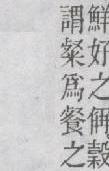 鮮好之偁穀
謂粲爲餐之